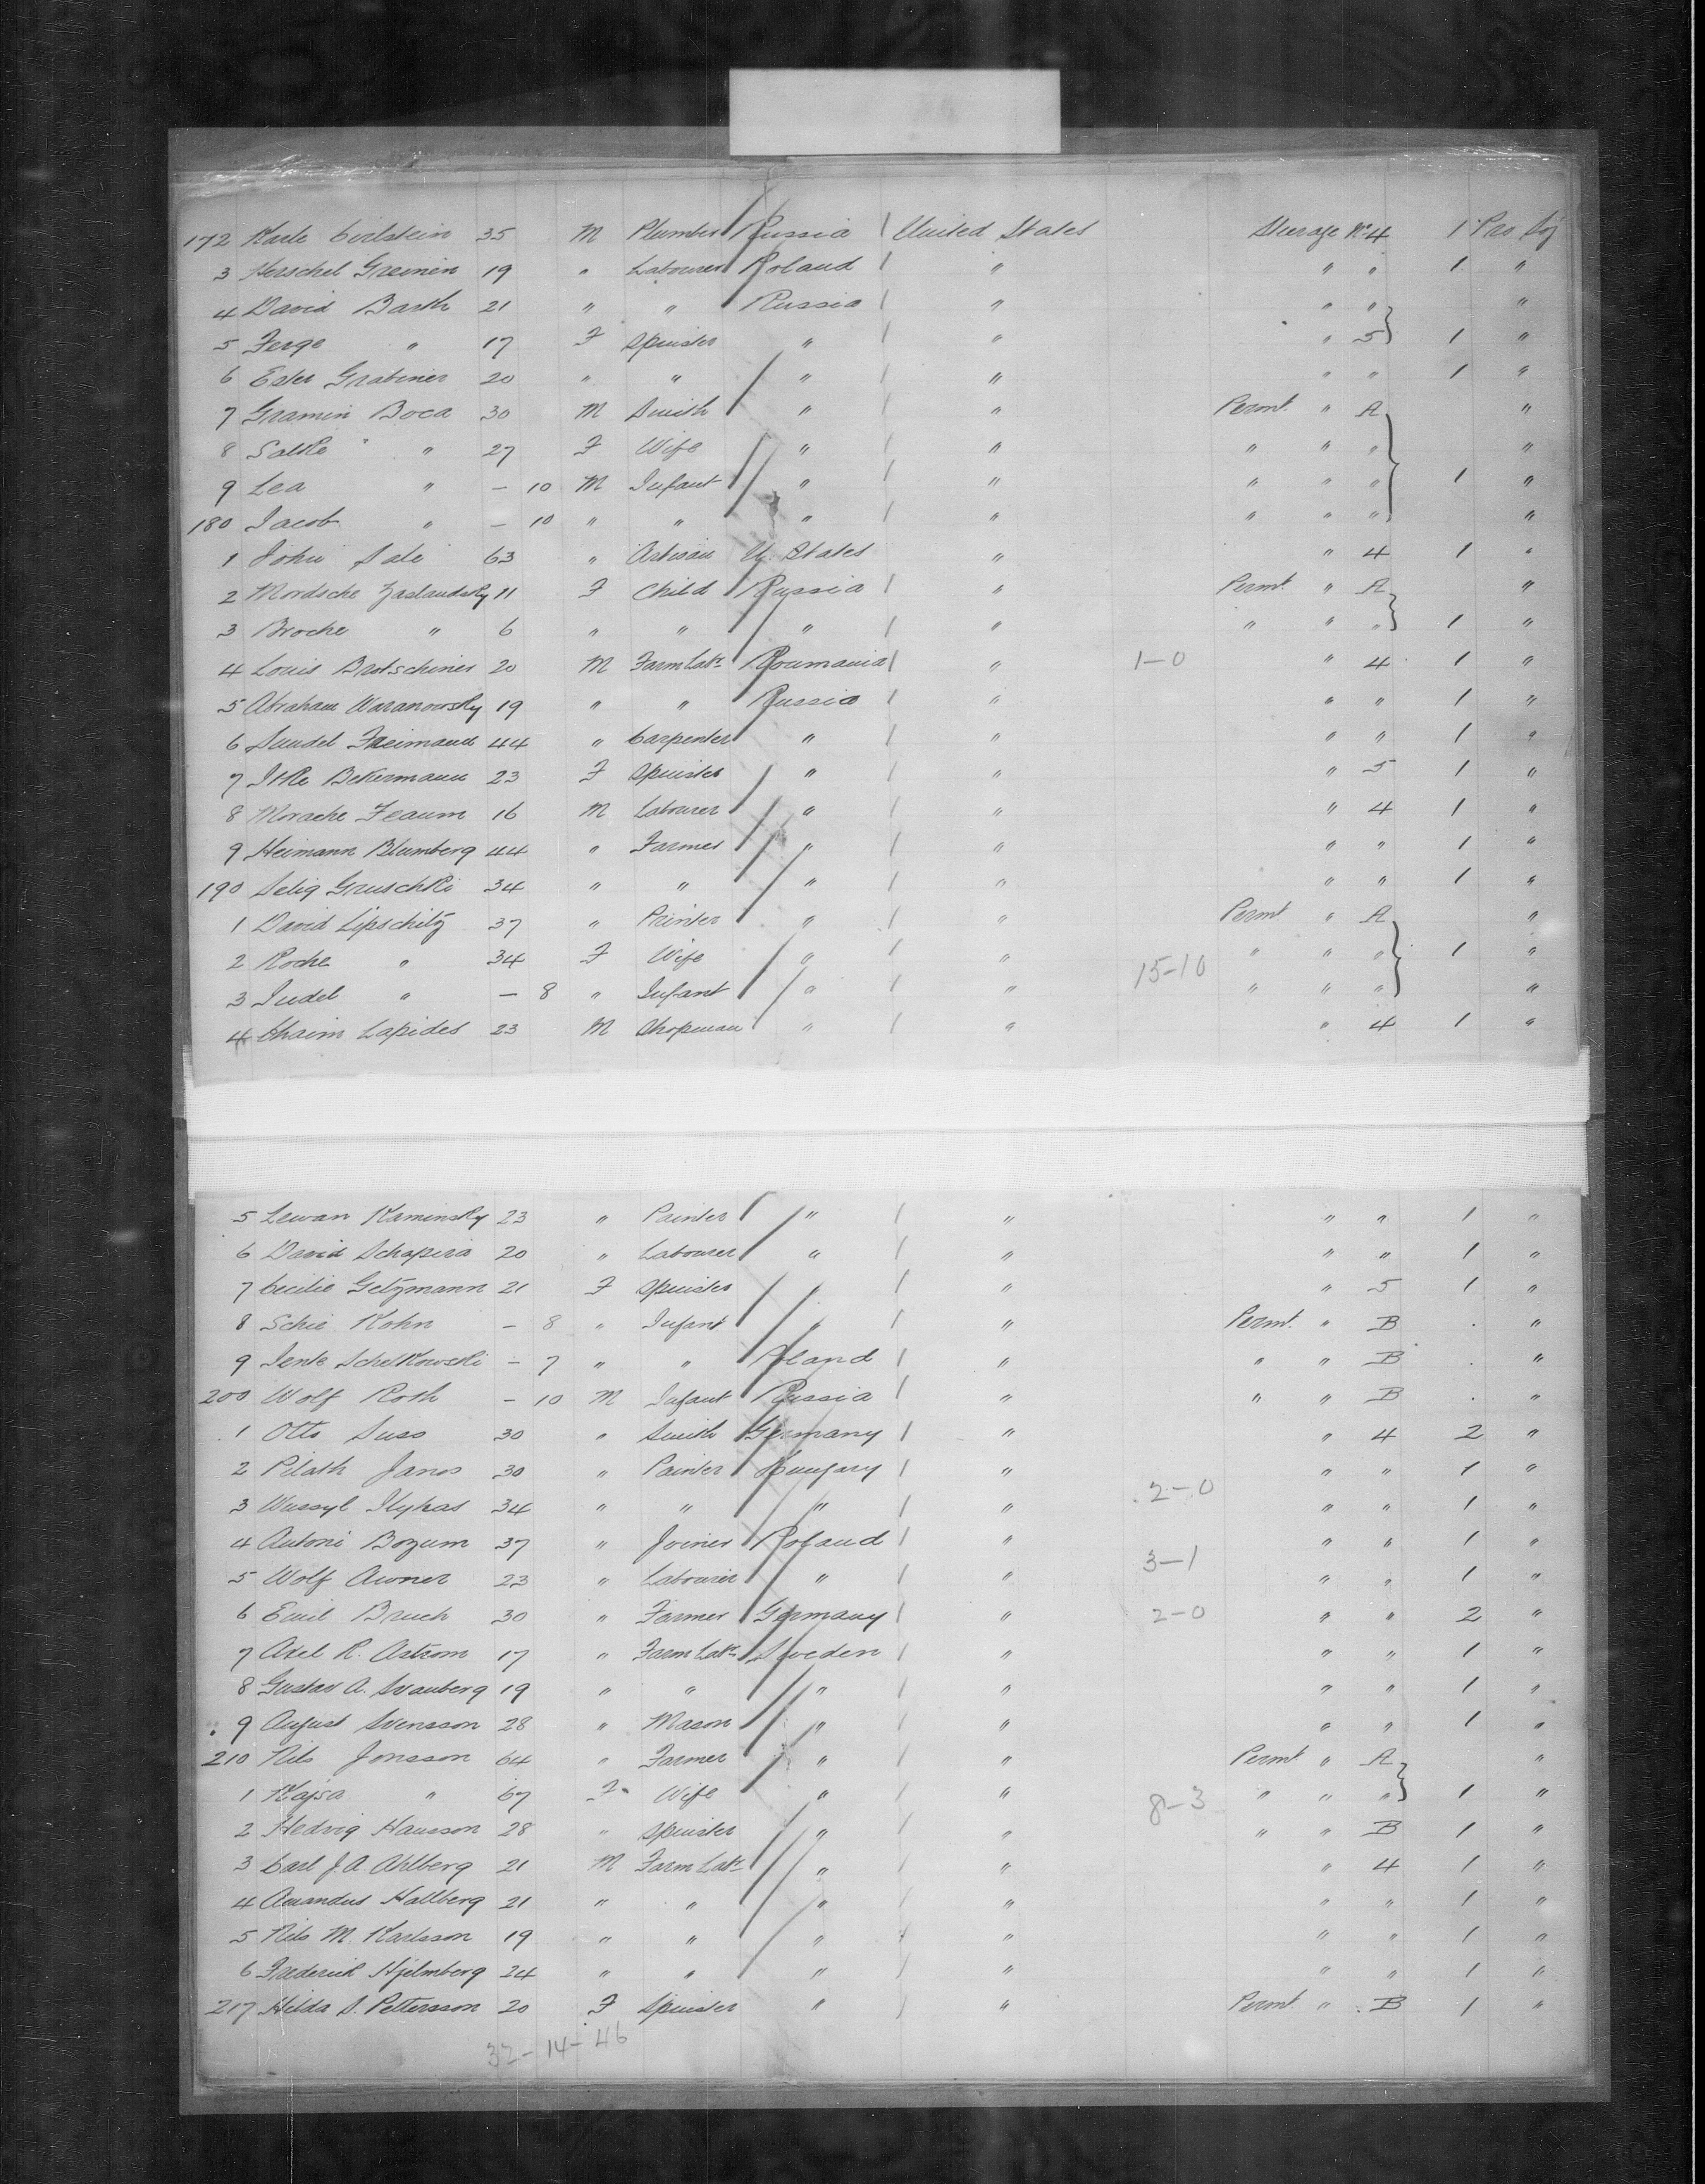 172 Karle Cirlstein 35 M Plumber Russia / United States Steerage No 4 1 Pro Soj
3 Herschel Greinen 19 " Labourer Poland / " " " 1 "
4 David Barth 21 " " Russia / " " " "
5 Ferge " 17 F Spinster " / " " 5 1 "
6 Ester Grabiner 20 " " " / " " " 1 "
7 Gramin Boca 30 M Smith " / " Permt. " A "
8 Salke " 27 F Wife " / " " " " "
9 Lea " — 10 M Infant " / " " " " 1 "
180 Jacob " — 10 " " " / " " " " "
1 John Sale 63 " Artisan U. States " " 4 1 "
2 Mordsche Zaslandsky 11 F Child Russia / " Permt. " A "
3 Broche " 6 " " " / " " " " 1 "
4 Louis Brotschiner 20 M Farm Labr Roumania / " 1-0 " 4 1 "
5 Abraham Waranowsky 19 " " Russia / " " " 1 "
6 Sundel Freimann 44 " Carpenter " / " " " 1 "
7 Itke Bekermann 23 F Spinster " / " " 5 1 "
8 Morache Feaum 16 M Labourer " / " " 4 1 "
9 Heimann Blumberg 44 " Farmer " / " " " 1 "
190 Selig Gruschki 34 " " " / " " " 1 "
1 David Lipschitz 37 " Painter " / " Permt. " A "
2 Roche " 34 F Wife " / " 15-10 " " " 1 "
3 Judel " — 8 " Infant " / " " " " "
4 Chaim Lapides 23 M Shopman " / " " 4 1 "
5 Lewan Kaminsky 23 " Painter " / " " " 1 "
6 David Schapira 20 " Labourer " / " " " 1 "
7 Cecilie Getzmann 21 F Spinster " / " " 5 1 "
8 Schie Kohn — 8 " Infant " / " Permt. " B . "
9 Jente Schelkowski — 7 " " Poland / " " " B . "
200 Wolf Roth — 10 M Infant Russia / " " " B . "
1 Otto Suss 30 " Smith Germany / " " 4 2 "
2 Pilath Janos 30 " Painter Hungary / " " " 1 "
3 Wassyl Ilykas 34 " " " / " 2-0 " " 1 "
4 Antoni Bozum 37 " Joiner Poland / " " " 1 "
5 Wolf Awner 23 " Labourer " / " 3-1 " " 1 "
6 Emil Bruch 30 " Farmer Germany / " 2-0 " " 2 "
7 Axel R. Astrom 17 " Farm Labr Sweden / " " " 1 "
8 Gustav A. Svanberg 19 " " " / " " " 1 "
9 August Svensson 28 " Mason " / " " " 1 "
210 Nils Jonsson 64 " Farmer " / " Permt. " A "
1 Kajsa " 67 F Wife " / " 8-3 " " " 1 "
2 Hedvig Hansson 28 " Spinster " / " " " B 1 "
3 Carl J. A. Ahlberg 21 M Farm Labr " / " " 4 1 "
4 Amandus Hallberg 21 " " " / " " " 1 "
5 Nils M. Karlsson 19 " " " / " " " 1 "
6 Frederick Hjelmberg 24 " " " / " " " 1 "
217 Hilda S. Pettersson 20 F Spinster " / " Permt. " B 1 "
32-14-46